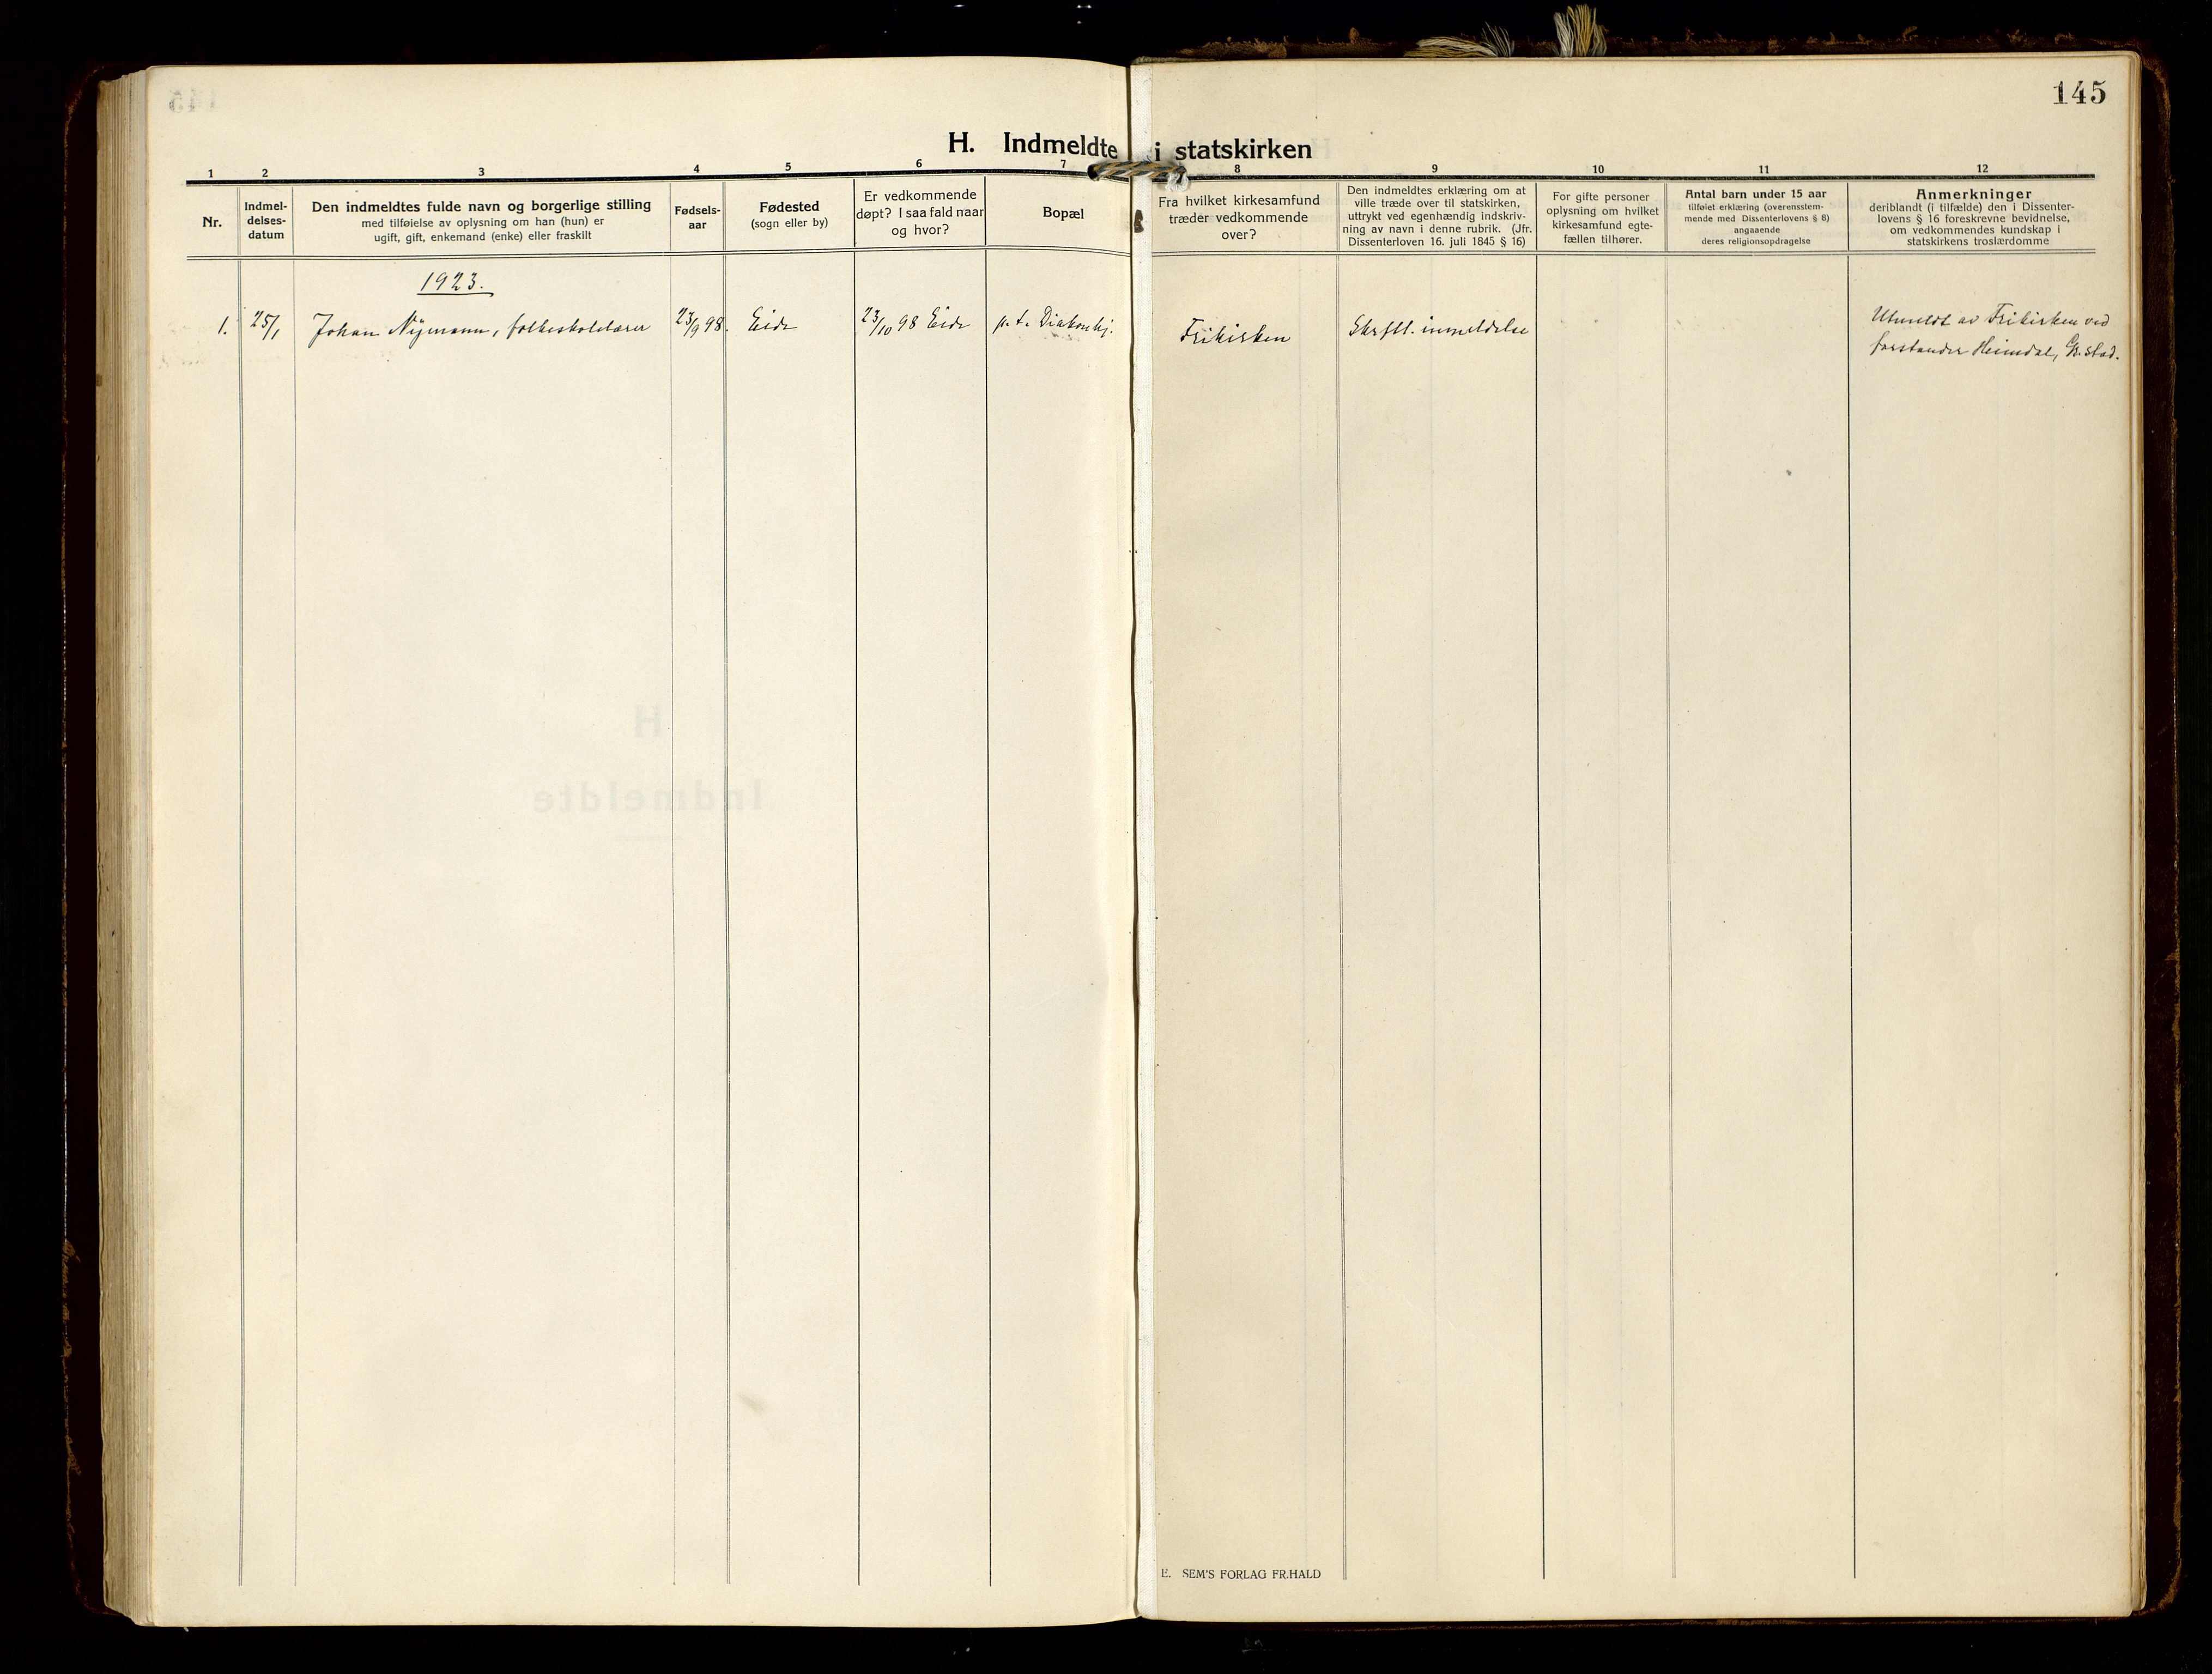 145
H. Indmeldte i statskirken
1 2 3 4 5 6 7 8 9 10 11 12
Nr.
Indmel-
delses-
datum
Den indmeldtes fulde navn og borgerlige stilling
med tilføielse av oplysning om han (hun) er
ugift, gift, enkemand (enke) eller fraskilt
Fødsels-
aar
Fødested
(sogn eller by)
Er vedkommende
døpt? I saa fald naar
og hvor?
Bopæl
Fra hvilket kirkesamfund
træder vedkommende
over?
Den indmeldtes erklæring om at
ville træde over til statskirken,
uttrykt ved egenhændig indskriv-
ning av navn i denne rubrik. (Jfr.
Dissenterloven 16. juli 1845 § 16)
For gifte personer
oplysning om hvilket
kirkesamfund egte-
fællen tilhører.
Antal barn under 15 aar
tilføiet erklæring (overensstem-
mende med Dissenterlovens § 8)
angaaende
deres religionsopdragelse
Anmerkninger
deriblandt (i tilfælde) den i Dissenter-
lovens § 16 foreskrevne bevidnelse,
om vedkommendes kundskap i
statskirkens troslærdomme
1923.
1. 25/1 Johan Nymann, folkeskolelærer 23/9 98. Eide 23/10 98 Eide p. t. Diakonhj. Frikirken Skrftl. inmeldelse
Utmeldt av Frikirken ved
forstander Heimdal, Gr.stad.
E. SEM'S FORLAG FR.HALD